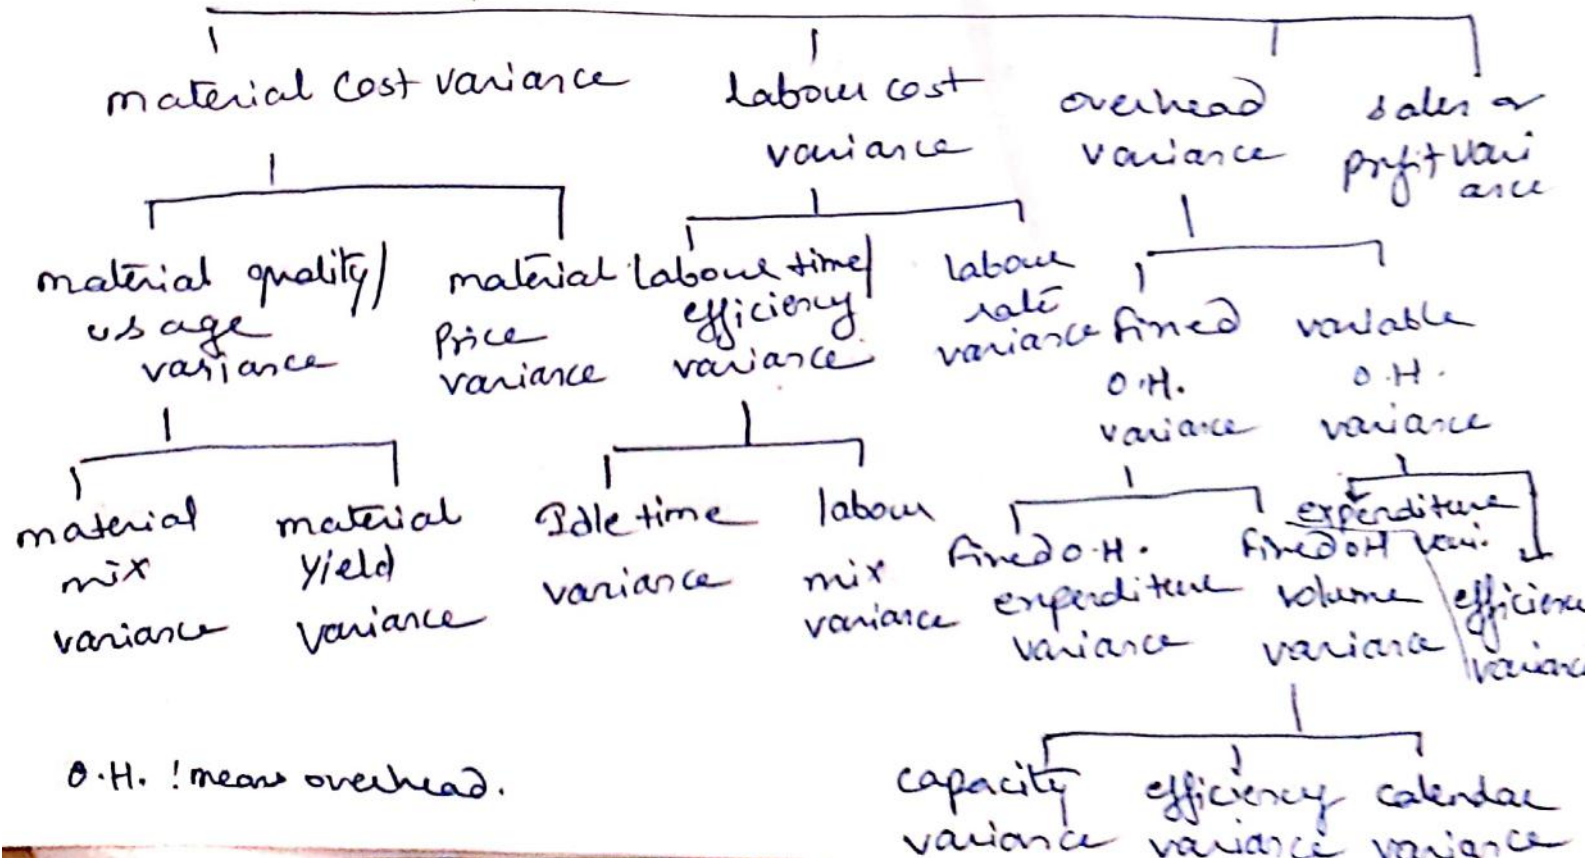 material cost variance
labour cost
variance
overhead
variance
sales or
profit vari
ance
material quality/
usage
variance
material
Price
variance
labour time/
efficiency
variance
labour
rate
variance
fixed
O.H.
variance
variable
O.H.
variance
material
mix
variance
material
Yield
variance
Idle time
variance
labour
mix
variance
fixed O.H.
expenditure
variance
fixed OH
volume
variance
expenditure
vari.
efficienc
varianc
capacity
variance
efficiency
variance
calendar
variance
O.H. : means overhead.